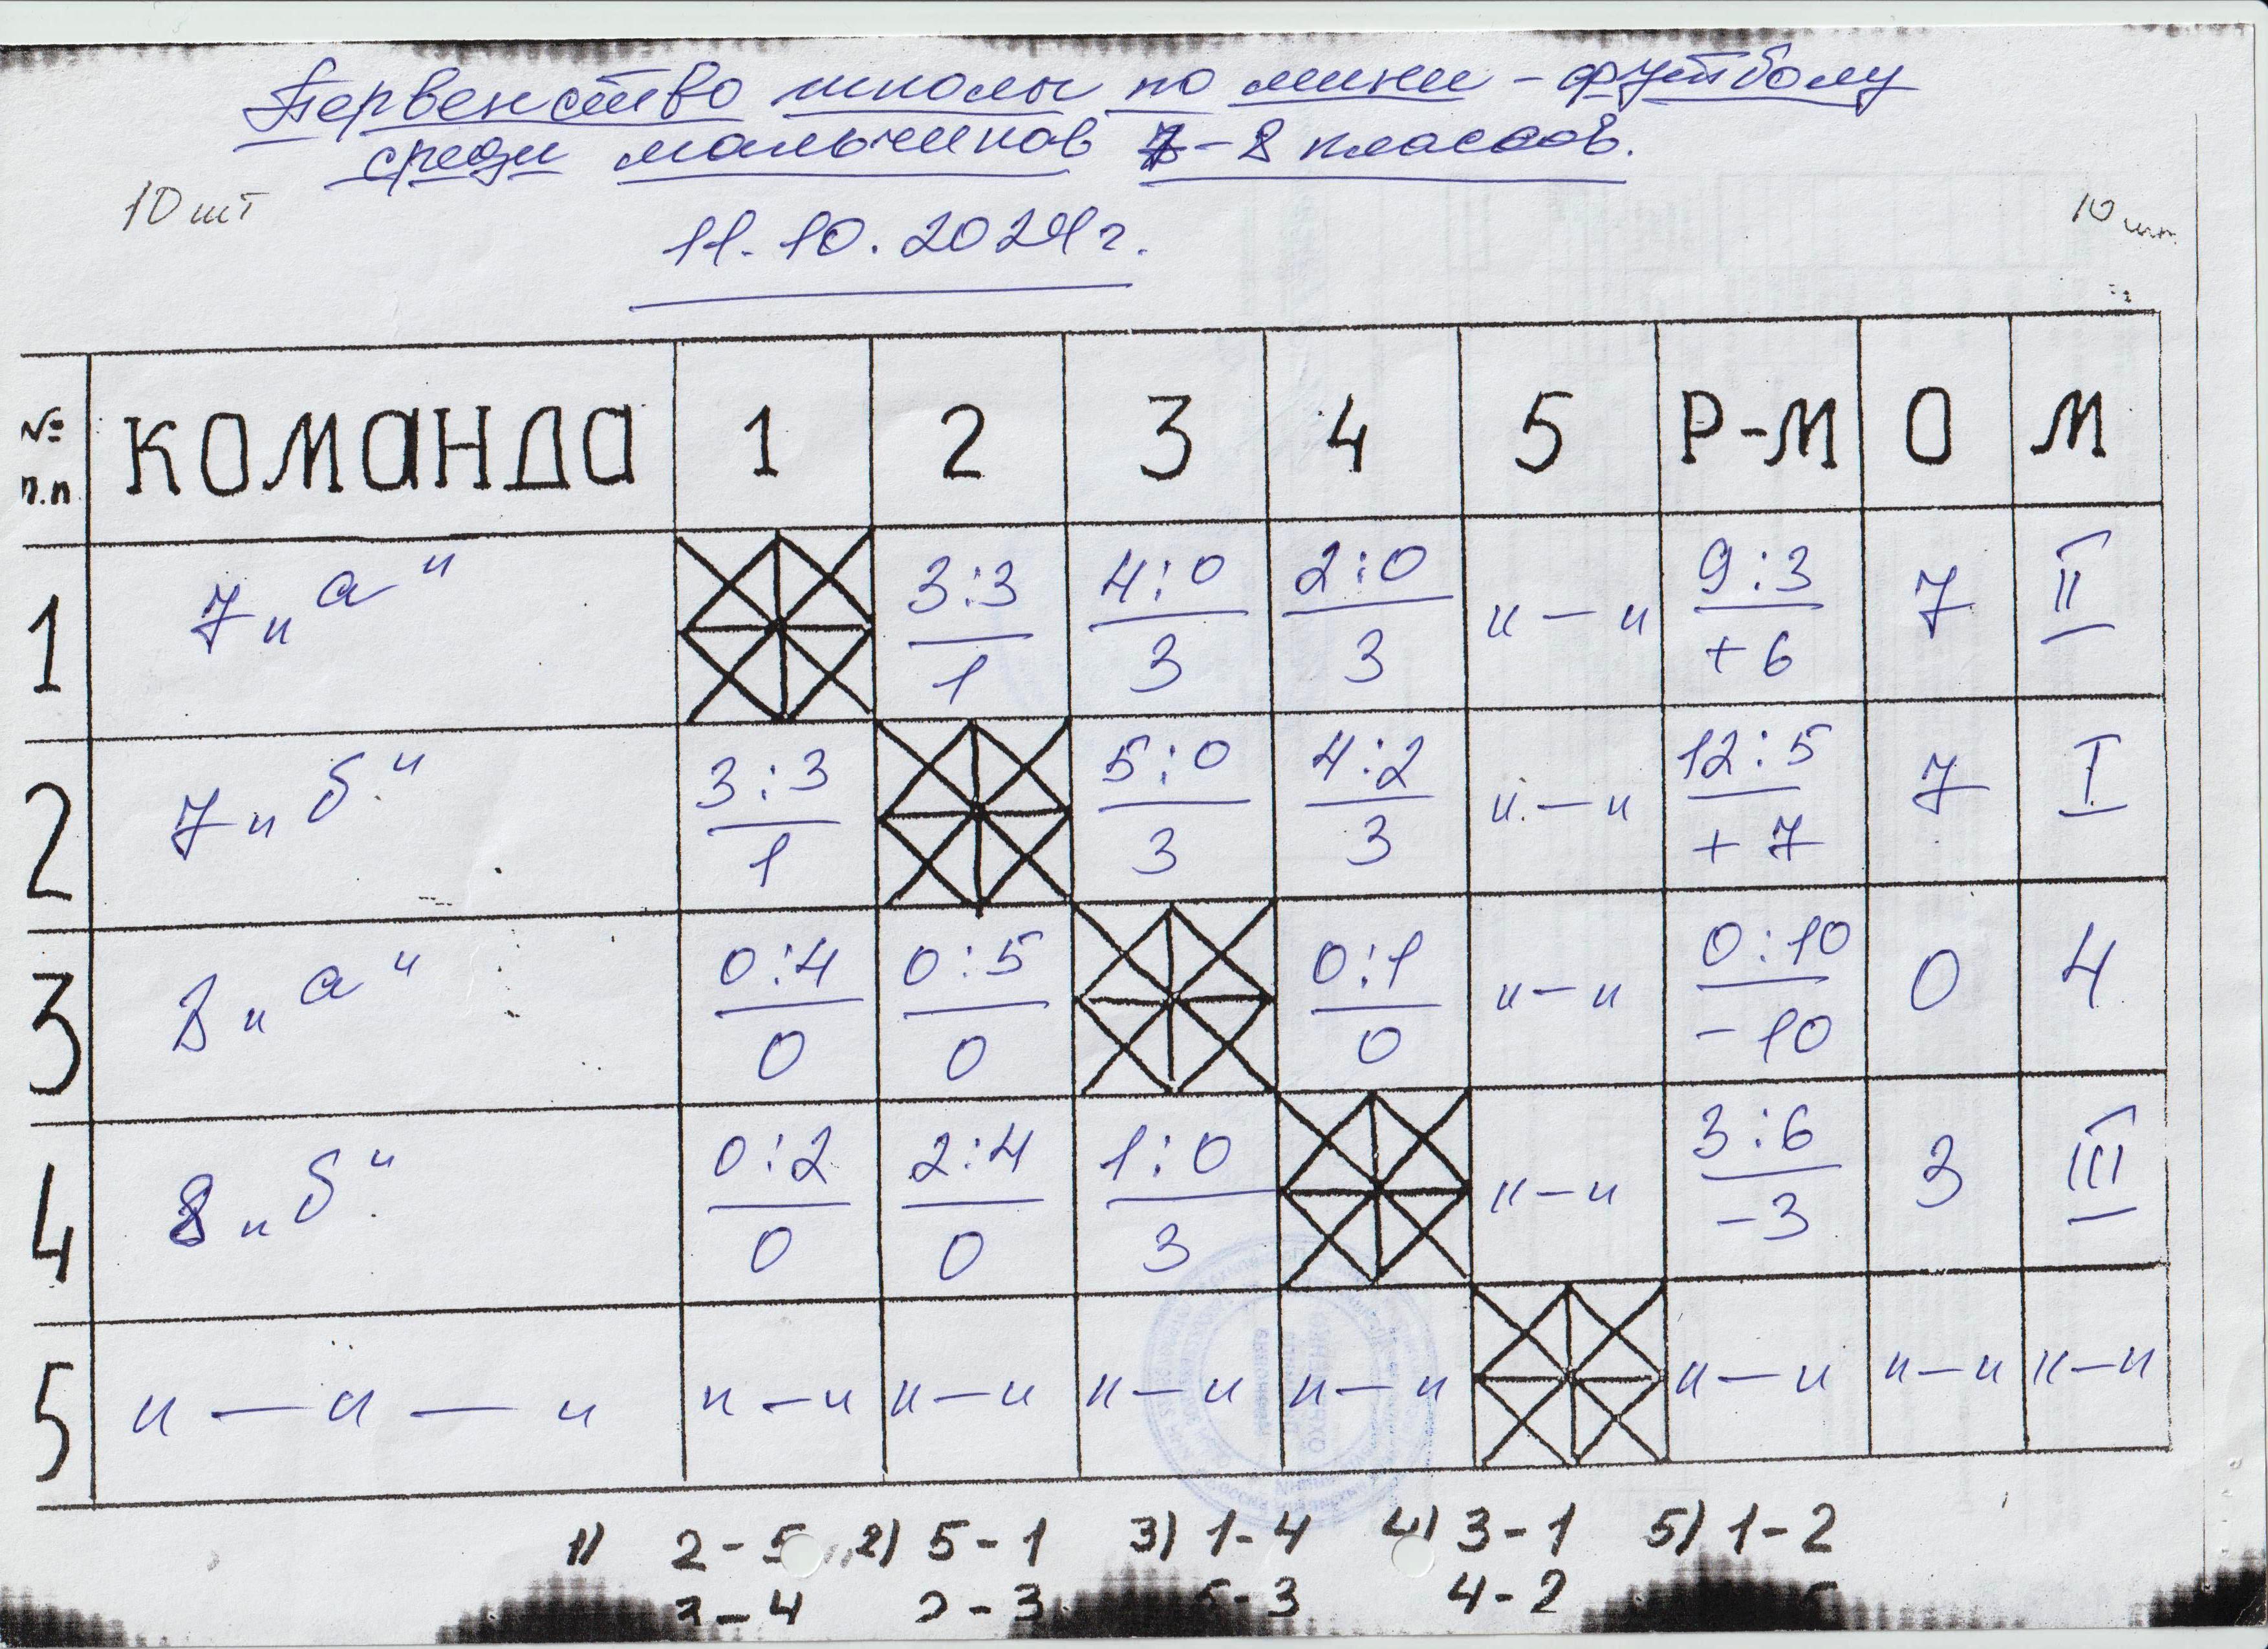 Первенство школы по мини-футболу
среди мальчиков 7-8 классов.
10 шт
10 шт
11.10.2024г.
№ п.п КОМАНДА 1 2 3 4 5 Р-М О М
1 7 "а" 3:3 4:0 2:0 "—" 9:3 7 II
1 3 3 +6
2 7 "б" 3:3 5:0 4:2 "—" 12:5 7 I
1 3 3 +7
3 8 "а" 0:4 0:5 0:1 "—" 0:10 0 4
0 0 0 -10
4 8 "б" 0:2 2:4 1:0 "—" 3:6 3 III
0 0 3 -3
5 "—"—" "—" "—" "—" "—" "—" "—" "—"
1) 2-5 2) 5-1 3) 1-4 4) 3-1 5) 1-2
3-4 2-3 5-3 4-2